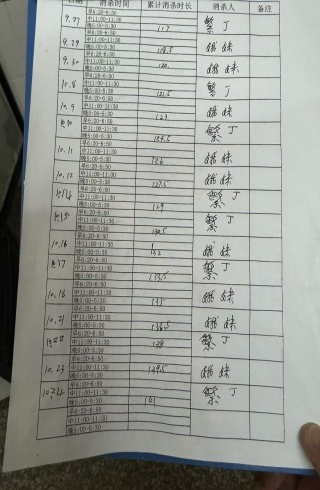 日期 消杀时间 累计消杀时长 消杀人 备注
早6:20-6:50
9.27 中11:00-11:30 117 繁丁
晚5:00-5:30
早6:20-6:50
9.29 中11:00-11:30 118.5 娥妹
晚5:00-5:30
早6:20-6:50
9.30 中11:00-11:30 120. 娥妹
晚5:00-5:30
早6:20-6:50
10.8 中11:00-11:30 121.5 繁丁
晚5:00-5:30
早6:20-6:50
10.9 中11:00-11:30 123 娥妹
晚5:00-5:30
早6:20-6:50
10.10 中11:00-11:30 124.5 繁丁
晚5:00-5:30
早6:20-6:50
10.11 中11:00-11:30 126 娥妹
晚5:00-5:30
早6:20-6:50
10.12 中11:00-11:30 127.5 娥妹
晚5:00-5:30
早6:20-6:50
10.14 中11:00-11:30 129 繁丁
晚5:00-5:30
早6:20-6:50
10.15 中11:00-11:30 130.5 繁丁
晚5:00-5:30
早6:20-6:50
10.16 中11:00-11:30 132 娥妹
晚5:00-5:30
早6:20-6:50
10.17 中11:00-11:30 133.5 繁丁
晚5:00-5:30
早6:20-6:50
10.18 中11:00-11:30 135 娥妹
晚5:00-5:30
早6:20-6:50
10.21 中11:00-11:30 136.5 娥妹
晚5:00-5:30
早6:20-6:50
10.22 中11:00-11:30 138 繁丁
晚5:00-5:30
早6:20-6:50
10.23 中11:00-11:30 139.5 娥妹
晚5:00-5:30
早6:20-6:50
10.24 中11:00-11:30 141 繁丁
晚5:00-5:30
早6:20-6:50
中11:00-11:30
晚5:00-5:30